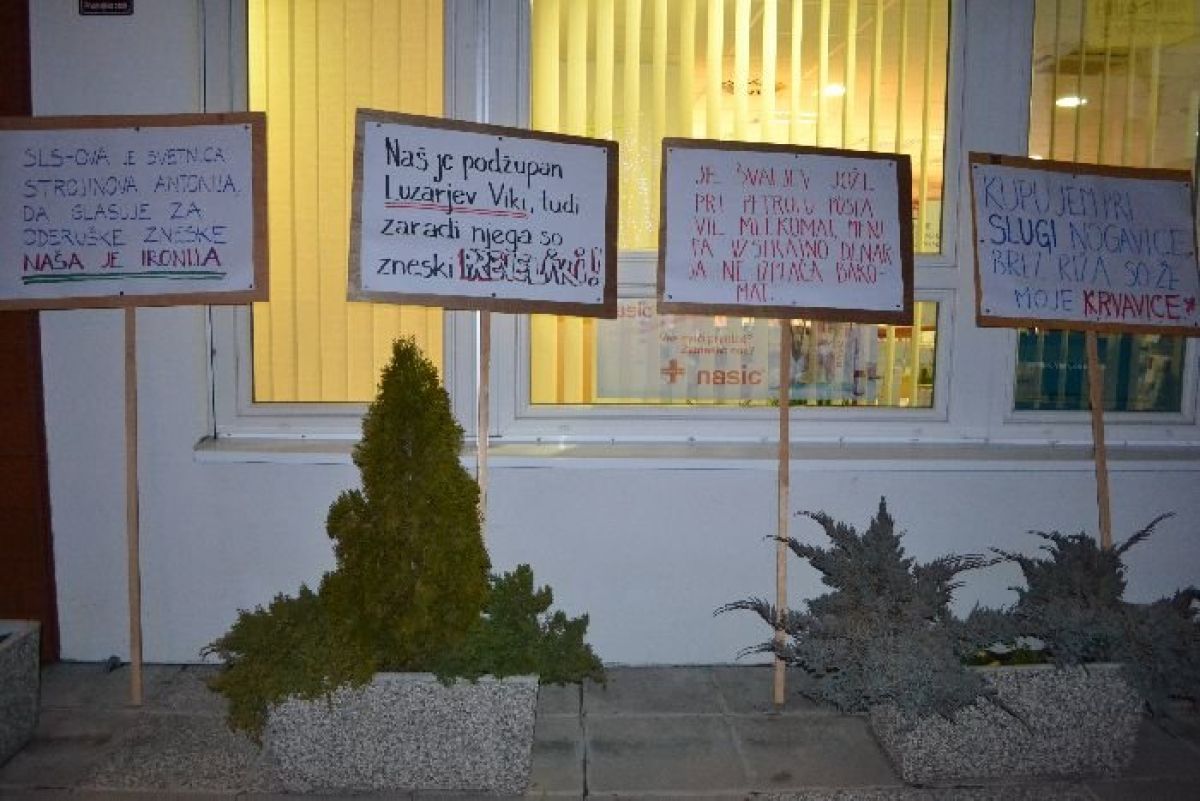 SLS-OVA JE SVETNICA
STROJINOVA ANTONIJA,
DA GLASUJE ZA
ODERUŠKE ZNESKE
NAŠA JE IRONIJA
Naš je podžupan
Luzarjev Viki, tudi
zaradi njega so
zneski !!!
JE ŠVALJEV JOŽE
PRI PETROLU POSTA
VIL MLEKOMAT, MENI
PA USTRAJNO DENAR
JA NE IZPLAČA BANKO-
MAT.
KUPUJEM PRI
SLUGI NOGAVICE
BREZ RIZA SO ŽE
MOJE KRVAVICE
nasic
+ nasic